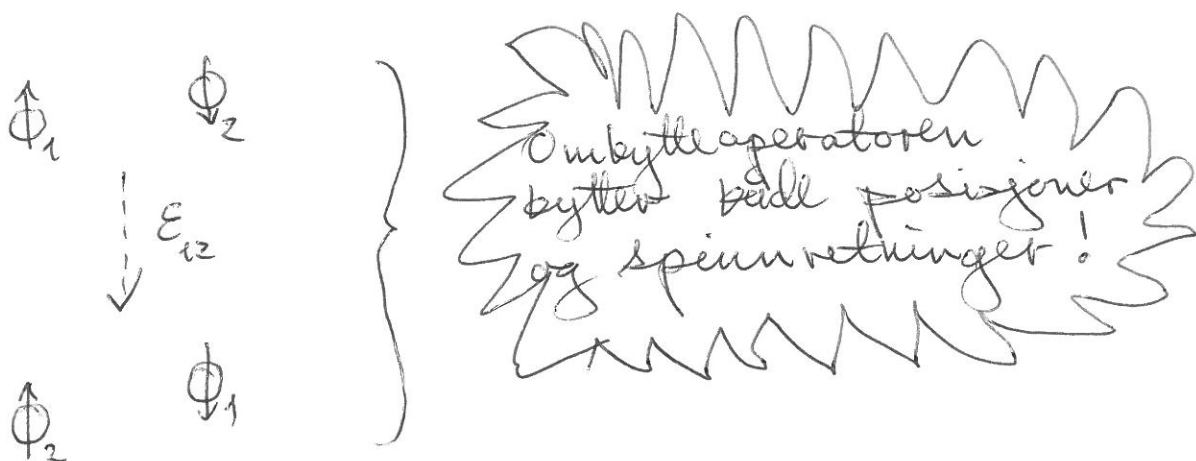 Φ₁ Φ₂
ε₁₂
Φ₂ Φ₁
Ombytteoperatoren
bytter både posisjoner
og spinnretninger!